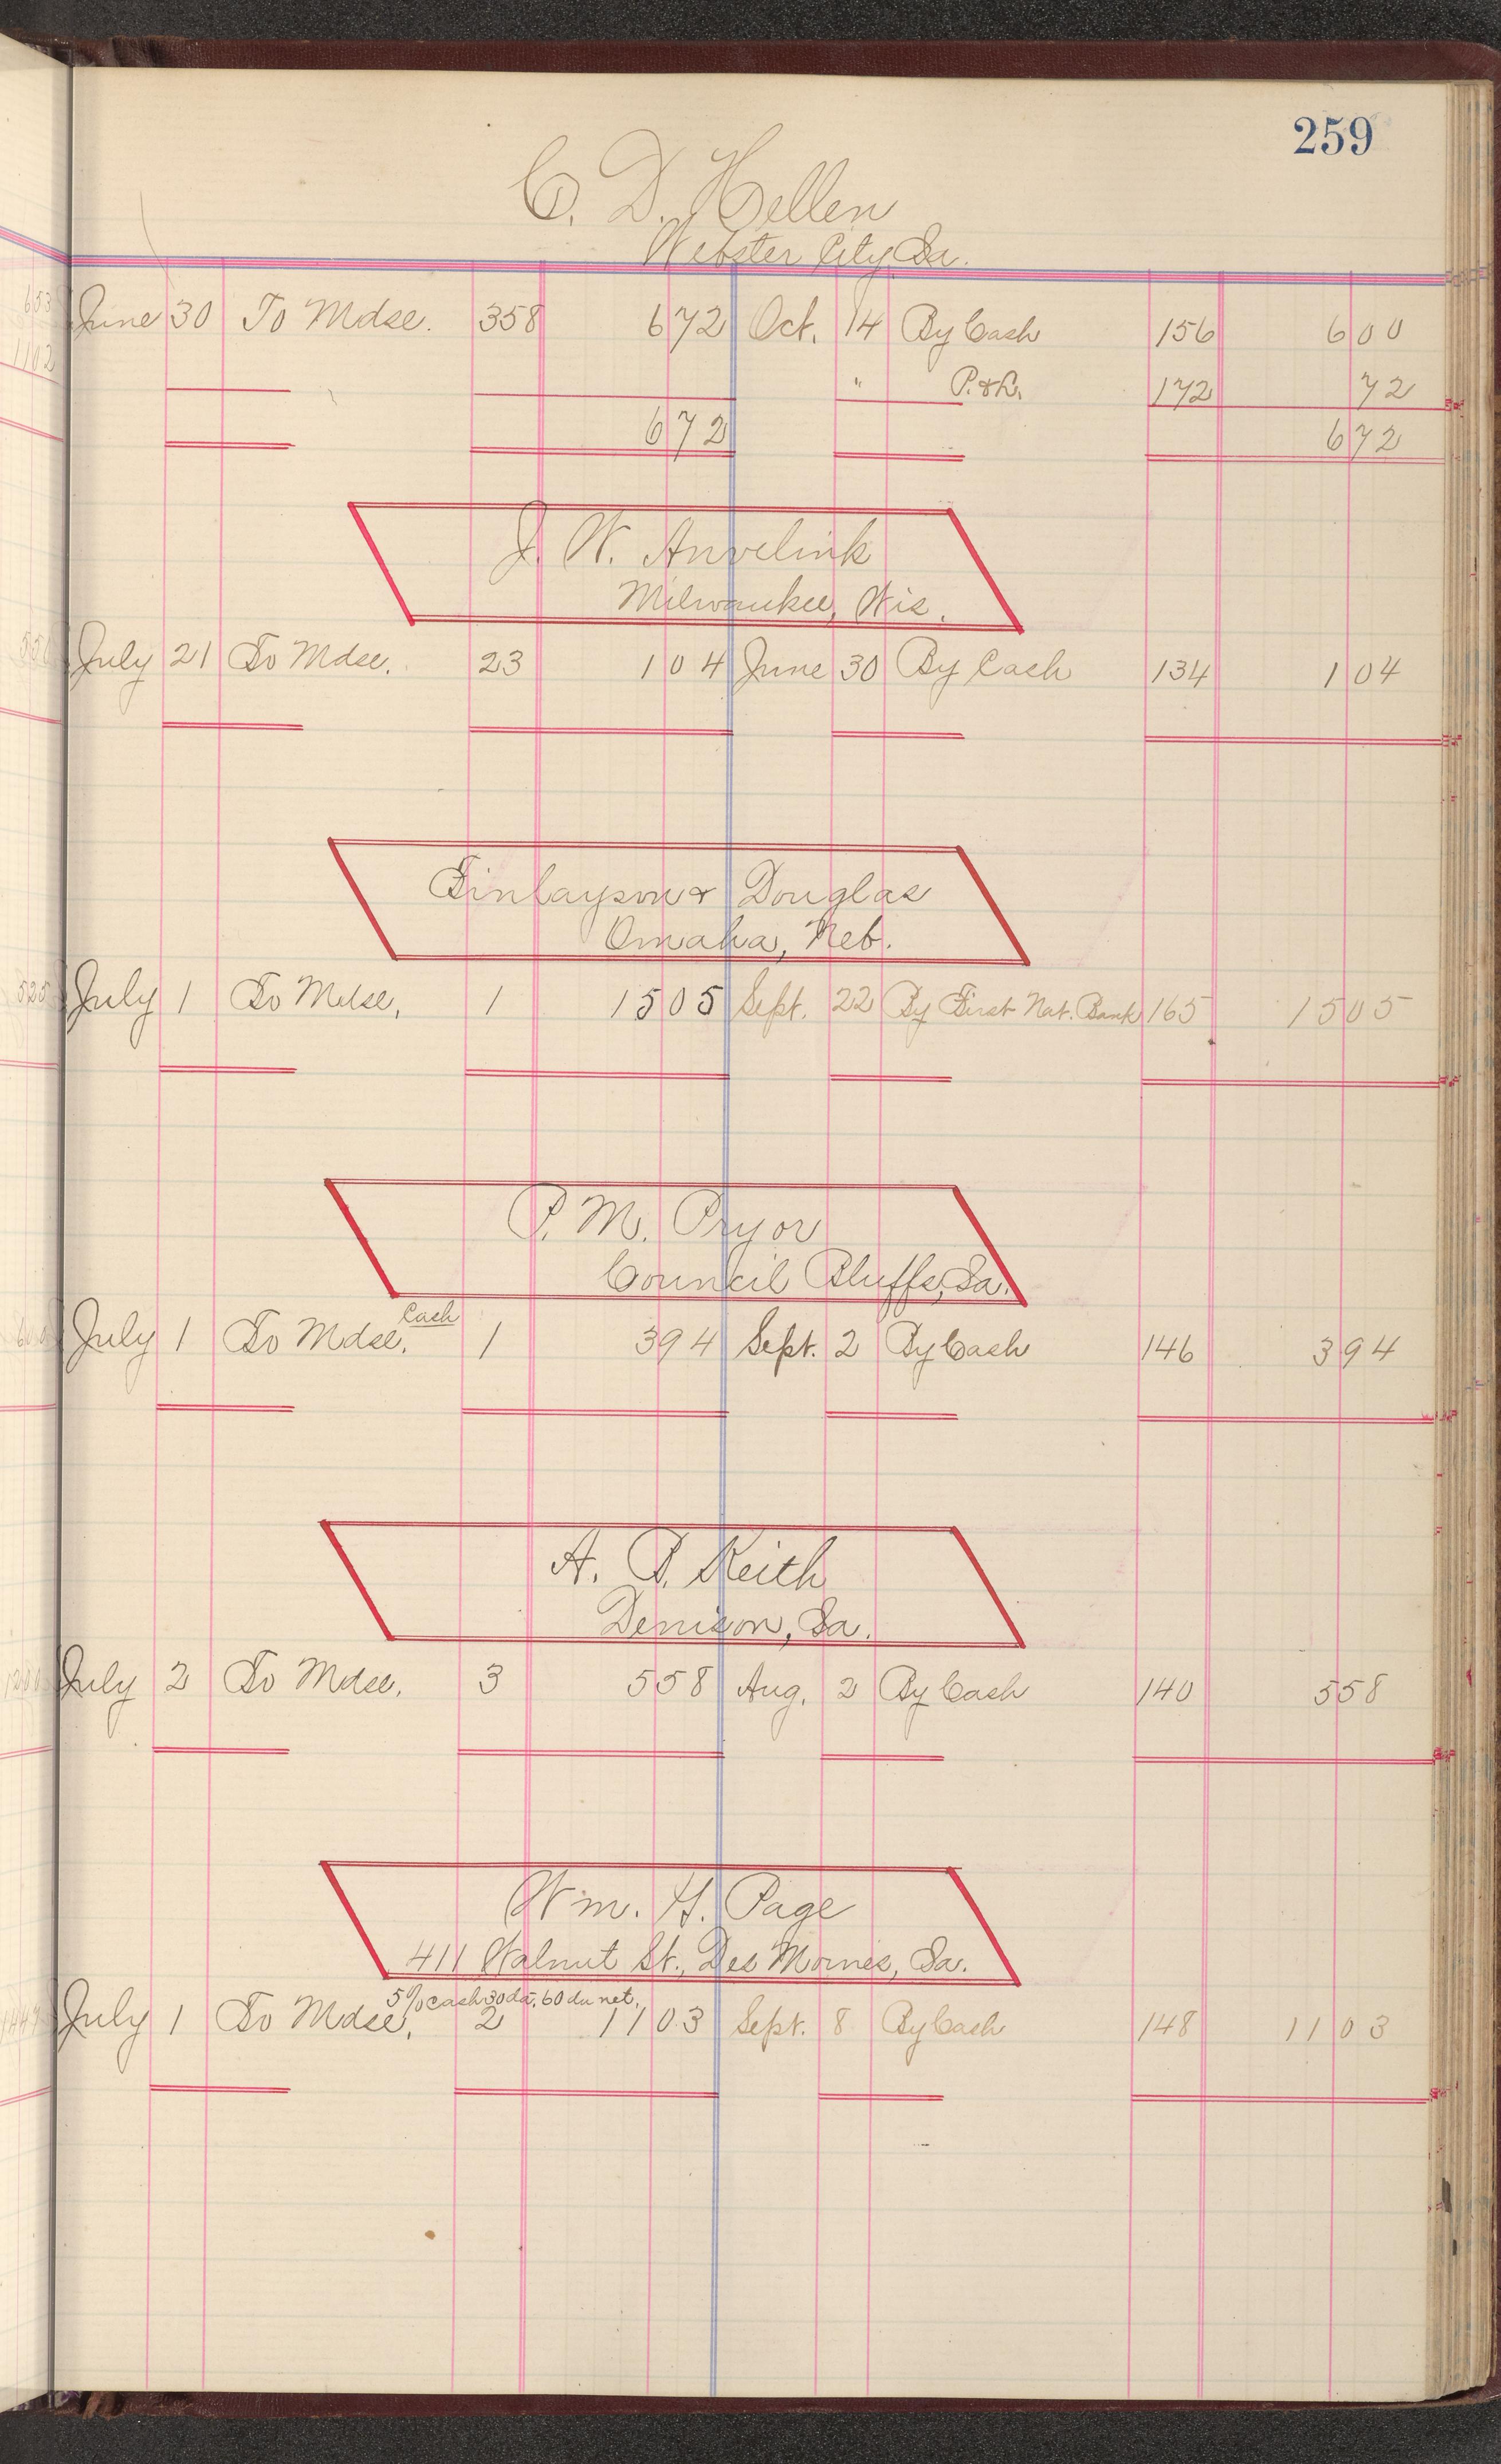 259
C. D. Hellen
Webster City, Ia.
June 30 To Mdse. 358 672 Oct. 14 By Cash 156 600
" P. & L. 172 72
672 672
J. W. Anvelink
Milwaukee, Wis.
July 21 To Mdse. 23 104 June 30 By Cash 134 104
Finlayson & Douglas
Omaha, Neb.
July 1 To Mdse, 1 1505 Sept. 22 By First Nat. Bank 165 1505
P. M. Pryor
Council Bluffs, Ia.
Cash
July 1 To Mdse, 1 394 Sept. 2 By Cash 146 394
A. P. Keith
Denison, Ia.
July 2 To Mdse, 3 558 Aug. 2 By Cash 140 558
Wm. H. Page
411 Walnut St., Des Moines, Ia.
5% cash 30 da, 60 da net.
July 1 To Mdse, 2 1103 Sept. 8 By Cash 148 1103